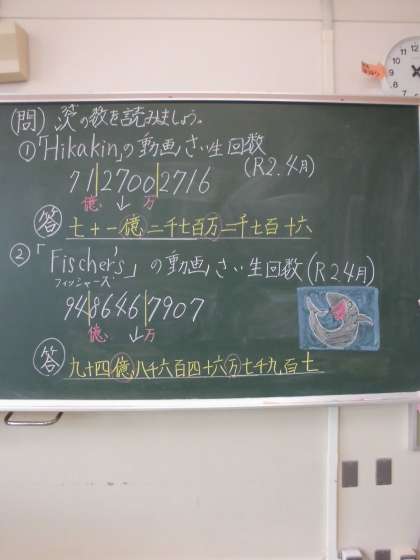 (問) 次の数を読みましょう。
①「Hikakin」の動画さい生回数
(R2.4月)
71|2700|2716
億 ↓ 万
答 七十一億二千七百万二千七百十六
②「Fischer's」の動画さい生回数(R2 4月)
フィッシャーズ
94|8646|7907
億 ↓ 万
答 九十四億八千六百四十六万七千九百七